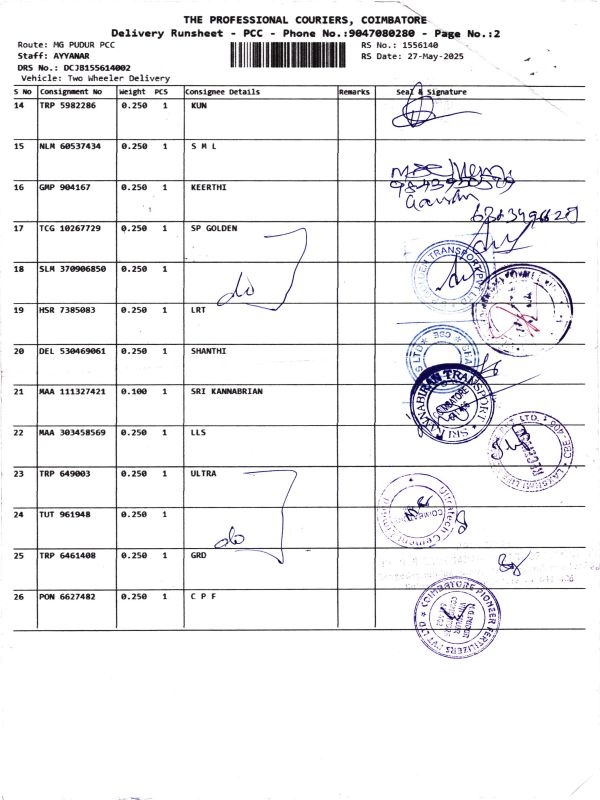 THE PROFESSIONAL COURIERS, COIMBATORE
Delivery Runsheet - PCC - Phone No.:9047080280 - Page No.:2
Route: MG PUDUR PCC
RS No.: 1556140
Staff: AYYANAR
RS Date: 27-May-2025
DRS No.: DCJB155614002
Vehicle: Two Wheeler Delivery
S No Consignment No Weight PCS Consignee Details Remarks Seal & Signature
14 TRP 5982286 0.250 1 KUN
15 NLM 60537434 0.250 1 S M L
16 GMP 904167 0.250 1 KEERTHI
17 TCG 10267729 0.250 1 SP GOLDEN
do
18 SLM 370906850 0.250 1
19 HSR 7385083 0.250 1 LRT
20 DEL 530469061 0.250 1 SHANTHI
21 MAA 111327421 0.100 1 SRI KANNABRIAN
SRI KANNABIRAN TRANSPORT
22 MAA 303458569 0.250 1 LLS
23 TRP 649003 0.250 1 ULTRA
24 TUT 961948 0.250 1
do
25 TRP 6461408 0.250 1 GRD
26 PON 6627482 0.250 1 C P F
COIMBATORE PIONEER FERTILIZERS PVT LTD